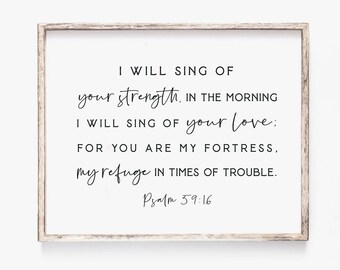 I WILL SING OF
your strength, IN THE MORNING
I WILL SING OF your love;
FOR YOU ARE MY FORTRESS,
my refuge IN TIMES OF TROUBLE.
Psalm 59:16